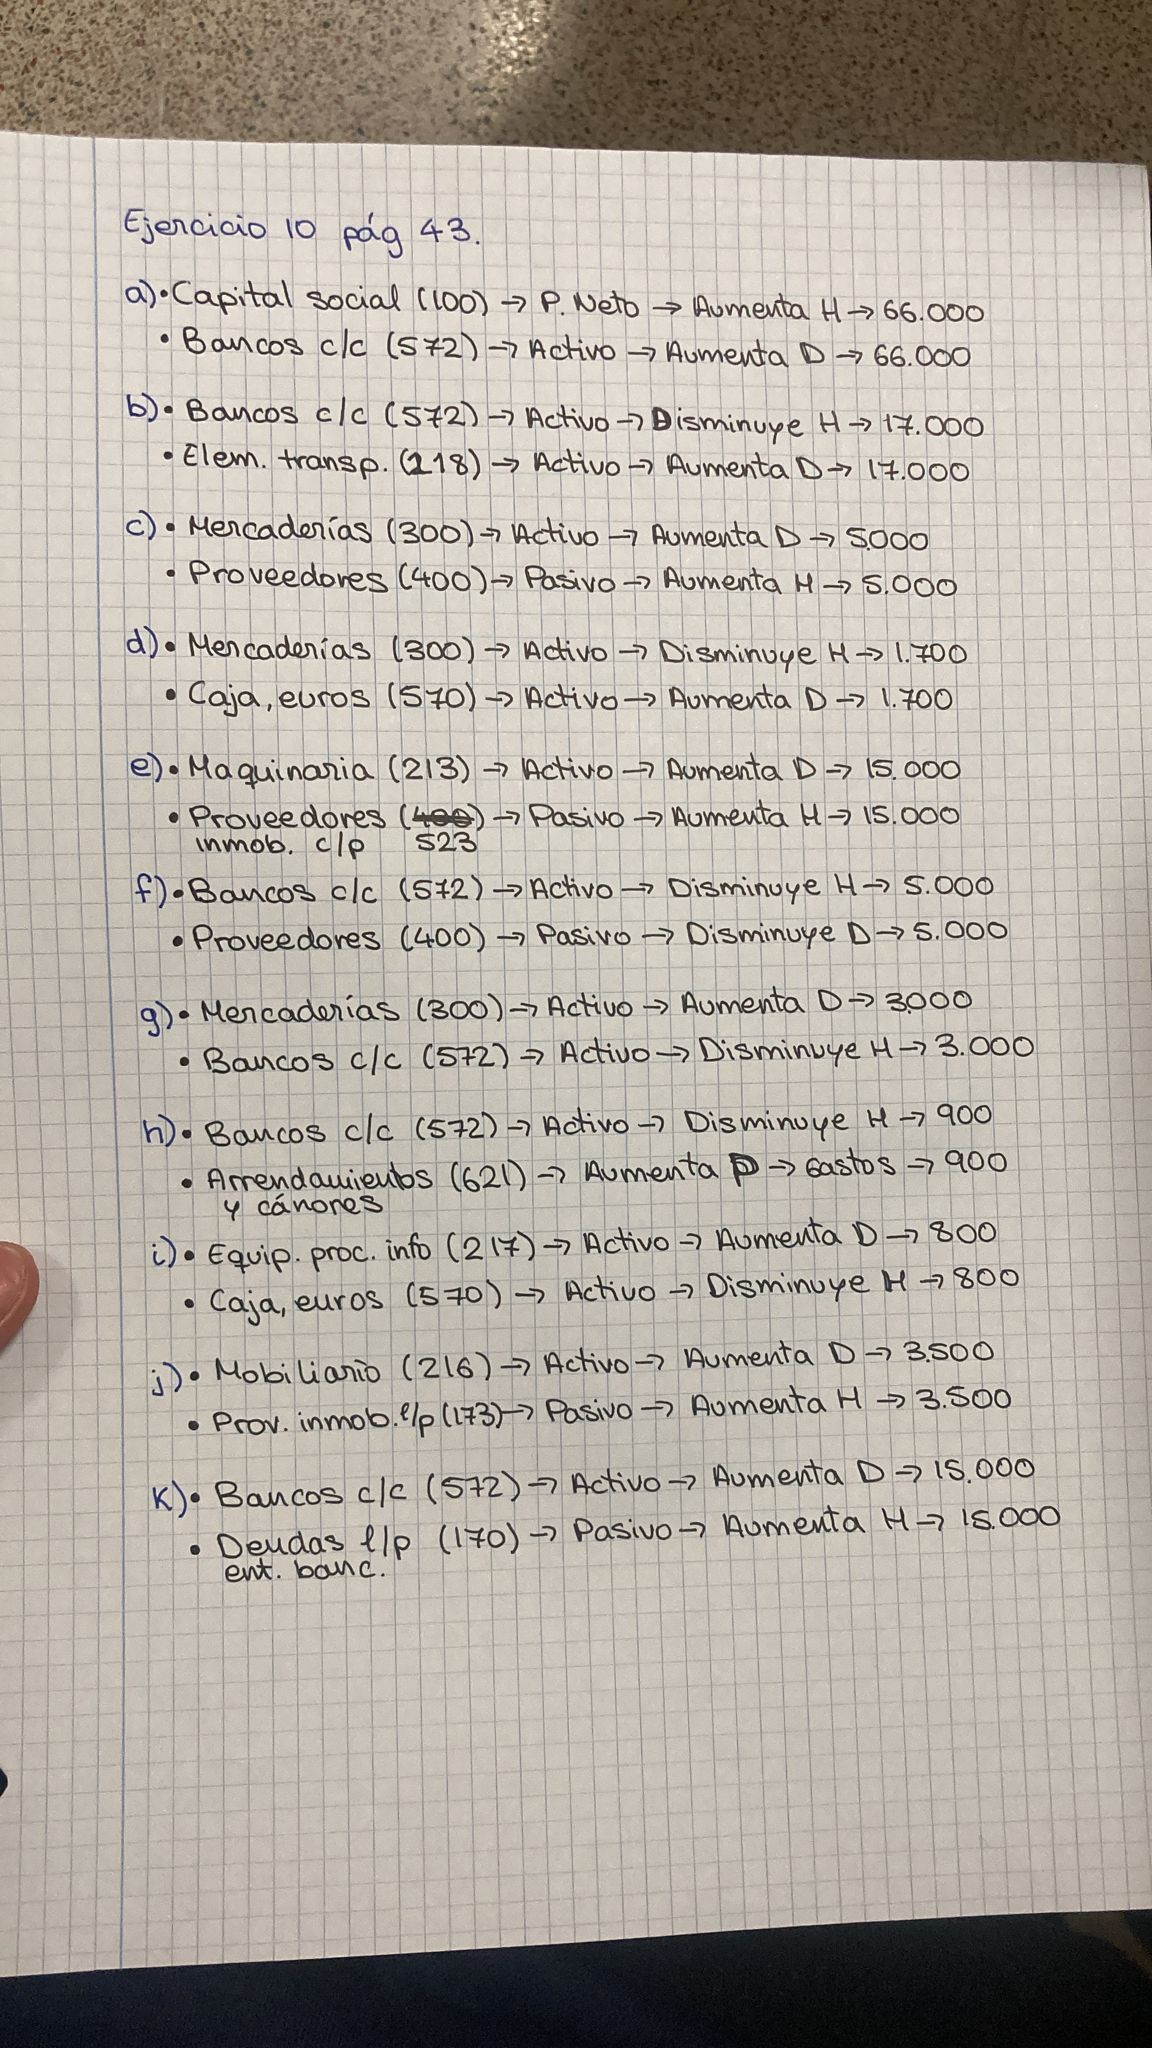 Ejercicio 10 pág 43.
a) • Capital social (100) → P. Neto → Aumenta H → 66.000
• Bancos c/c (572) → Activo → Aumenta D → 66.000
b) • Bancos c/c (572) → Activo → Disminuye H → 17.000
• Elem. transp. (218) → Activo → Aumenta D → 17.000
c) • Mercaderías (300) → Activo → Aumenta D → 5.000
• Proveedores (400) → Pasivo → Aumenta H → 5.000
d) • Mercaderías (300) → Activo → Disminuye H → 1.700
• Caja, euros (570) → Activo → Aumenta D → 1.700
e) • Maquinaria (213) → Activo → Aumenta D → 15.000
• Proveedores (400) → Pasivo → Aumenta H → 15.000
inmob. c/p 523
f) • Bancos c/c (572) → Activo → Disminuye H → 5.000
• Proveedores (400) → Pasivo → Disminuye D → 5.000
g) • Mercaderías (300) → Activo → Aumenta D → 3.000
• Bancos c/c (572) → Activo → Disminuye H → 3.000
h) • Bancos c/c (572) → Activo → Disminuye H → 900
• Arrendamientos (621) → Aumenta D → Gastos → 900
y cánones
i) • Equip. proc. info (217) → Activo → Aumenta D → 800
• Caja, euros (570) → Activo → Disminuye H → 800
j) • Mobiliario (216) → Activo → Aumenta D → 3.500
• Prov. inmob. l/p (173) → Pasivo → Aumenta H → 3.500
K) • Bancos c/c (572) → Activo → Aumenta D → 15.000
• Deudas l/p (170) → Pasivo → Aumenta H → 15.000
ent. banc.